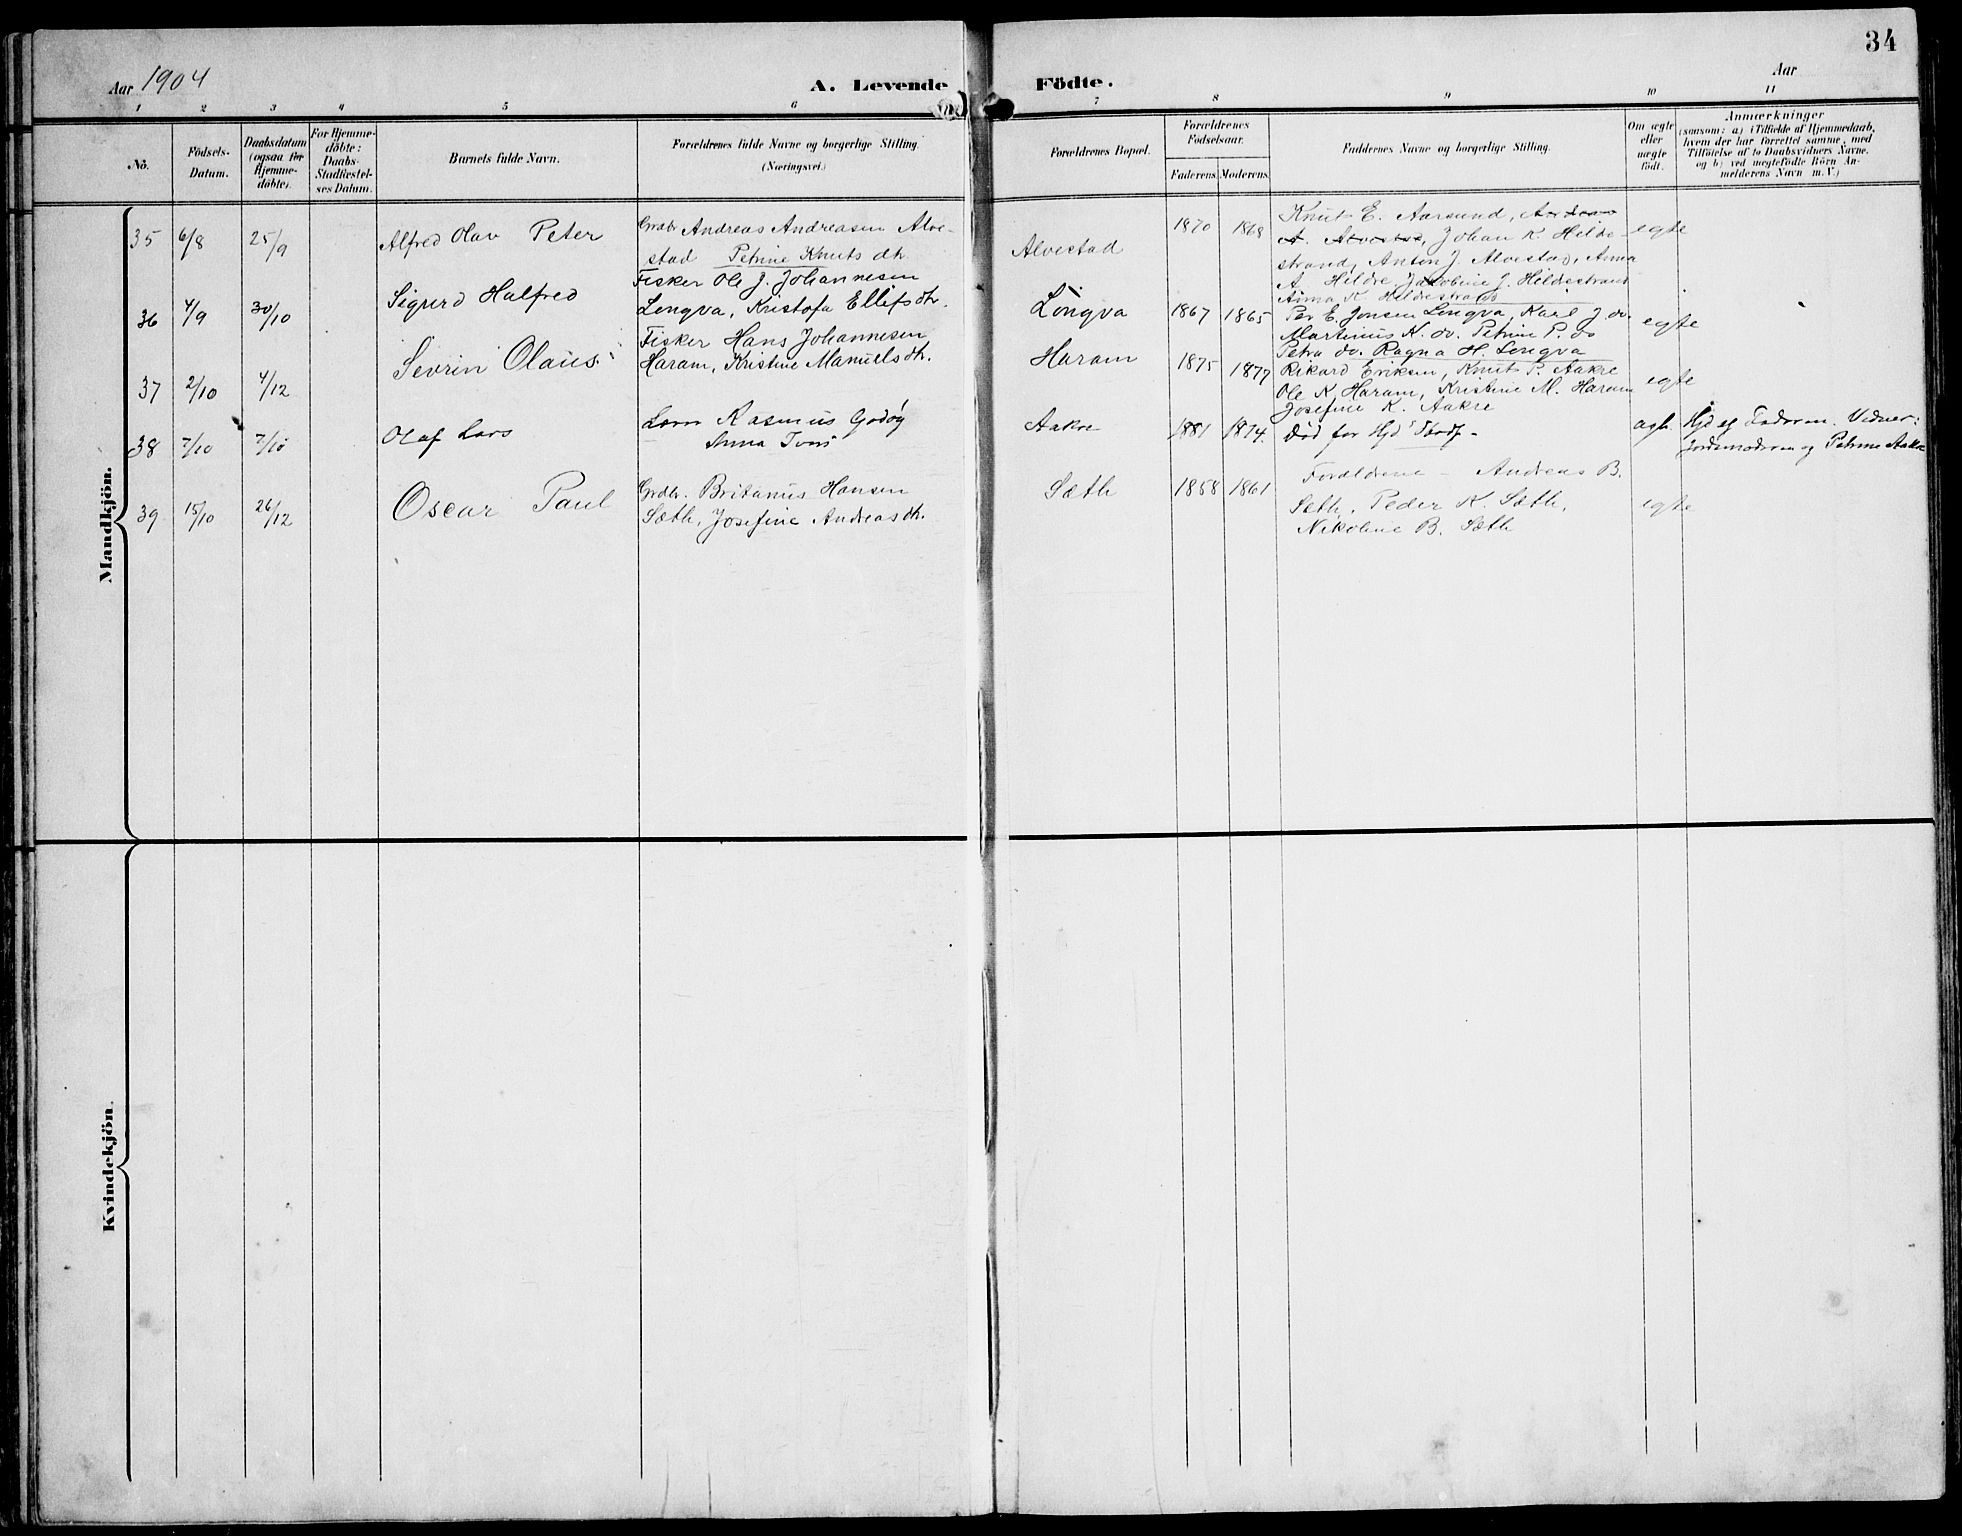 34
Aar 1904
A. Levende Födte.
Aar
1 2 3 4 5 6 7 8 9 10 11
No.
Födsels-
Datum.
Daabsdatum
(ogsaa for
Hjemme-
döbte).
For Hjemme-
döbte:
Daabs-
Stadfæstel-
ses Datum.
Barnets fulde Navn.
Forældrenes fulde Navne og borgerlige Stilling.
(Næringsvei.)
Forældrenes Bopæl.
Forældrenes
Födselsaar.
Faderens. Moderens.
Faddernes Navne og borgerlige Stilling.
Om ægte
eller
uægte
födt.
Anmærkninger
(saasom: a) i Tilfælde af Hjemmedaab,
hvem der har forrettet samme, med
Tilföielse af to Daabsvidners Navne.
og b) ved uægtefödte Börn An-
melderens Navn m. V.)
Mandkjön.
35 6/8 25/9 Alfred Olav Peter
Grdbr. Andreas Andreasen Alve-
stad Petrine Knuts dtr.
Alvestad 1870 1868
Knut E. Aarsund,
A. Alvestad, Johan K. Hilde-
strand, Anton J. Alvestad, Anna
A. Hildre, Jakobine J. Hildestrand
Anna K. Hildrestrand
egte
36 4/9 30/10 Sigurd Halfred
Fisker Ole J. Johannesen
Longva, Kristofa Ellefsdtr.
Longva 1867 1865
Per E. Jonsen Longva, Karl J. do.
Martinus K. do. Petrine P. do
Petra do. Ragna H. Longva
egte
37 2/10 4/12 Sevrin Olaus
Fisker Hans Johannesen
Haram, Kristine Manuelsdtr.
Haram 1875 1877
Rikard Eriksen, Knut P. Aakre
Ole K. Haram, Kristine M. Haram
Josefine K. Aakre
egte
38 7/10 7/10 Olaf Lars
Rasmus Godøy
Anna
Aakre 1881 1874.
Død før Stadf.
Hjd af Faderen. Vidner:
Jordemoderen og Petrine Aakre
39 15/10 26/12 Oscar Paul
Grdbr. Britanus Hansen
Sæth, Josefine Andreasdtr.
Sæth 1858 1861
Forældrene - Andreas B.
Sæth, Peder K. Sæth,
Nikoline B. Sæth
egte
Kvindekjön.